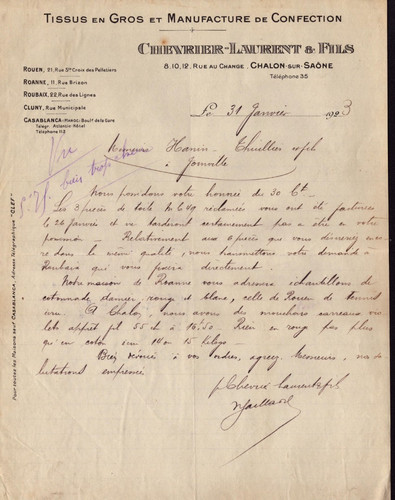 TISSUS EN GROS ET MANUFACTURE DE CONFECTION
CHEVRIER-LAURENT & FILS
8, 10, 12, RUE AU CHANGE. CHALON-SUR-SAÔNE
Téléphone 35
ROUEN, 21, Rue Ste Croix des Pelletiers
ROANNE, 11, Rue Brison
ROUBAIX, 22, Rue des Lignes
CLUNY, Rue Municipale
CASABLANCA (MAROC) Boult de la Gare
Télégr. Atlantic-Hôtel
Téléphone 113
Le 31 Janvier 1923
Vu
Messieurs Hanin Thuillier & fils
à Joinville
Nous possédons votre honorée du 30 Ct.
Les 3 pièces de toile réclamées vous ont été facturées
le 26 Janvier et ne tarderont certainement pas à être en votre
possession. Relativement aux pièces que vous désireriez encore
dans la même qualité, nous transmettons votre demande à
Roubaix qui vous fixera directement.
Notre maison de Roanne vous adressera échantillons de
cotonnade damier, rouge et blanc, celle de Rouen de
A Chalon, nous avons des mouchoirs carreaux
apprêt fil 55 à 16,50 Rien en rouge pas plus
qu'en coton
Bien dévoués à vos ordres, agréez, Messieurs, nos
salutations empressées
p. Chevrier Laurent & fils
Pour toutes les Maisons sauf CASABLANCA, Adresse Télégraphique "CLEF"